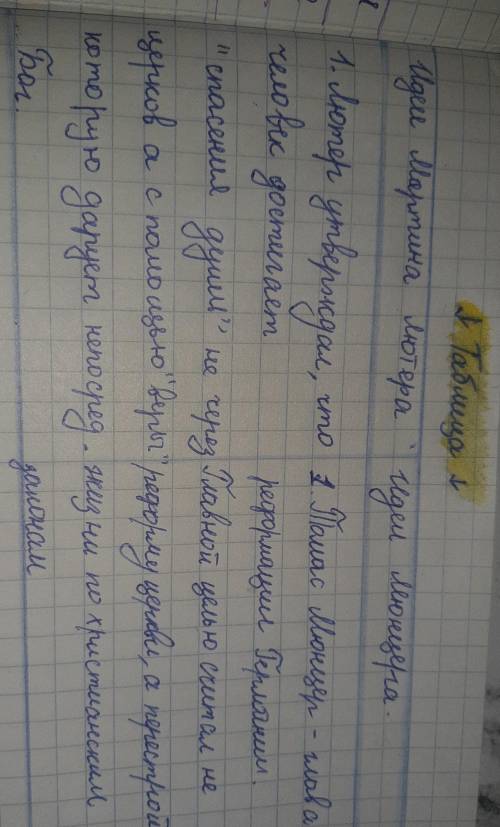 ↓ Таблица ↓
Идеи Мартина Лютера
1. Лютер утверждал, что
человек достигает
"спасения души" не через
церков а с помощью "веры"
которую дарует непосред.
Бог.
Идеи Мюнцера.
1. Томас Мюнцер - глава
реформации Германии.
Главной целью считал не
реформу церкви, а перестрой
жизни по христианским
законам